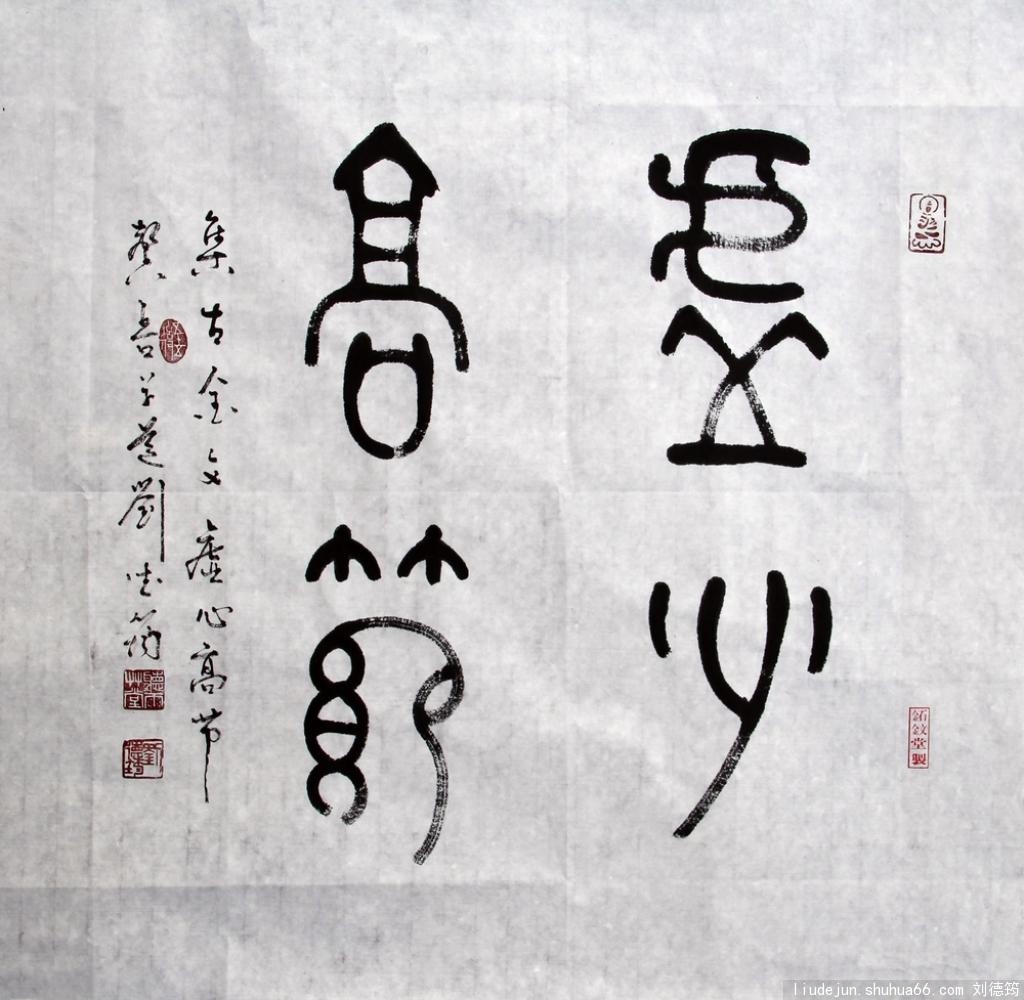 虛心
高節
集古金文虚心高节
劉德筠
鉐鈫堂製
liudejun.shuhua66.com 刘德筠